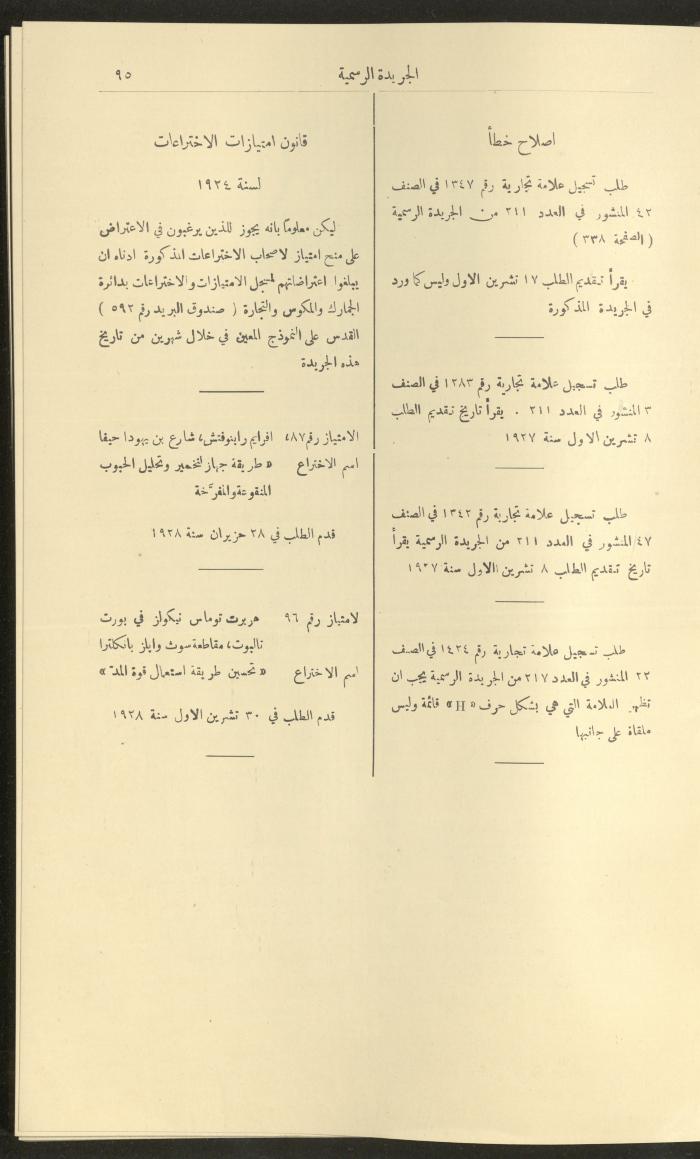 الجريدة الرسمية
٩٥
اصلاح خطأ
طلب تسجيل علامة تجارية رقم ١٣٤٧ في الصنف
٤٢ المنشور في العدد ٢١١ من الجريدة الرسمية
( الصفحة ٣٣٨ )
يقرأ تقديم الطلب ١٧ تشرين الاول وليس كما ورد
في الجريدة المذكورة
طلب تسجيل علامة تجارية رقم ١٢٨٣ في الصنف
٣ المنشور في العدد ٢١١ . يقرأ تاريخ تقديم الطلب
٨ تشرين الاول سنة ١٩٢٧
طلب تسجيل علامة تجارية رقم ١٣٤٢ في الصنف
٤٧ المنشور في العدد ٢١١ من الجريدة الرسمية يقرأ
تاريخ تقديم الطلب ٨ تشرين الاول سنة ١٩٢٧
طلب تسجيل علامة تجارية رقم ١٤٢٤ في الصنف
٢٢ المنشور في العدد ٢١٧ من الجريدة الرسمية يجب ان
تظهر العلامة التي هي بشكل حرف « H » قائمة وليس
ملقاة على جانبها
قانون امتيازات الاختراعات
لسنة ١٩٢٤
ليكن معلوماً بانه يجوز للذين يرغبون في الاعتراض
على منح امتياز لاصحاب الاختراعات المذكورة ادناه ان
يبلغوا اعتراضاتهم لمسجل الامتيازات والاختراعات بدائرة
الجمارك والمكوس والتجارة ( صندوق البريد رقم ٥٩٢ )
القدس على النموذج المعين في خلال شهرين من تاريخ
هذه الجريدة
الامتياز رقم ٨٧، افرايم رابنوفتش، شارع بن يهودا حيفا
اسم الاختراع « طريقة جهاز لتخمير وتحليل الحبوب
المنقوعة والمفرَّخة
قدم الطلب في ٢٨ حزيران سنة ١٩٢٨
لامتياز رقم ٩٦ هربرت توماس نيكولز في بورت
تالبوت، مقاطعة سوث وايلز بانكلترا
اسم الاختراع « تحسين طريقة استعمال قوة المد »
قدم الطلب في ٣٠ تشرين الاول سنة ١٩٢٨